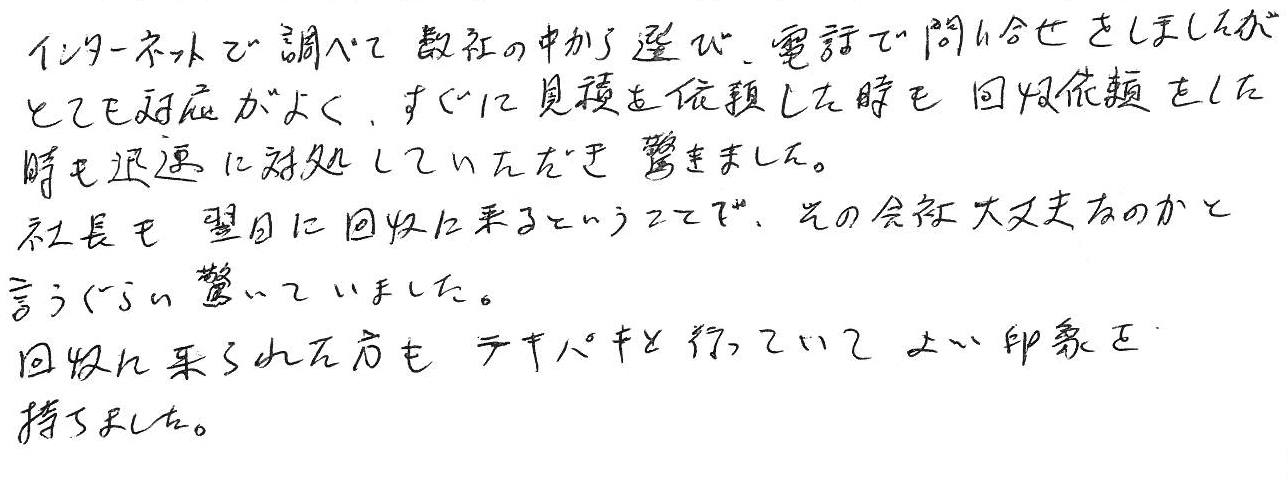 インターネットで調べて数社の中から選び、電話で問い合せをしましたが
とても対応がよく、すぐに見積を依頼した時も回収依頼をした
時も迅速に対処していただき驚きました。
社長も翌日に回収に来るということで、その会社大丈夫なのかと
言うぐらい驚いていました。
回収に来られた方もテキパキと行っていてよい印象を
持ちました。